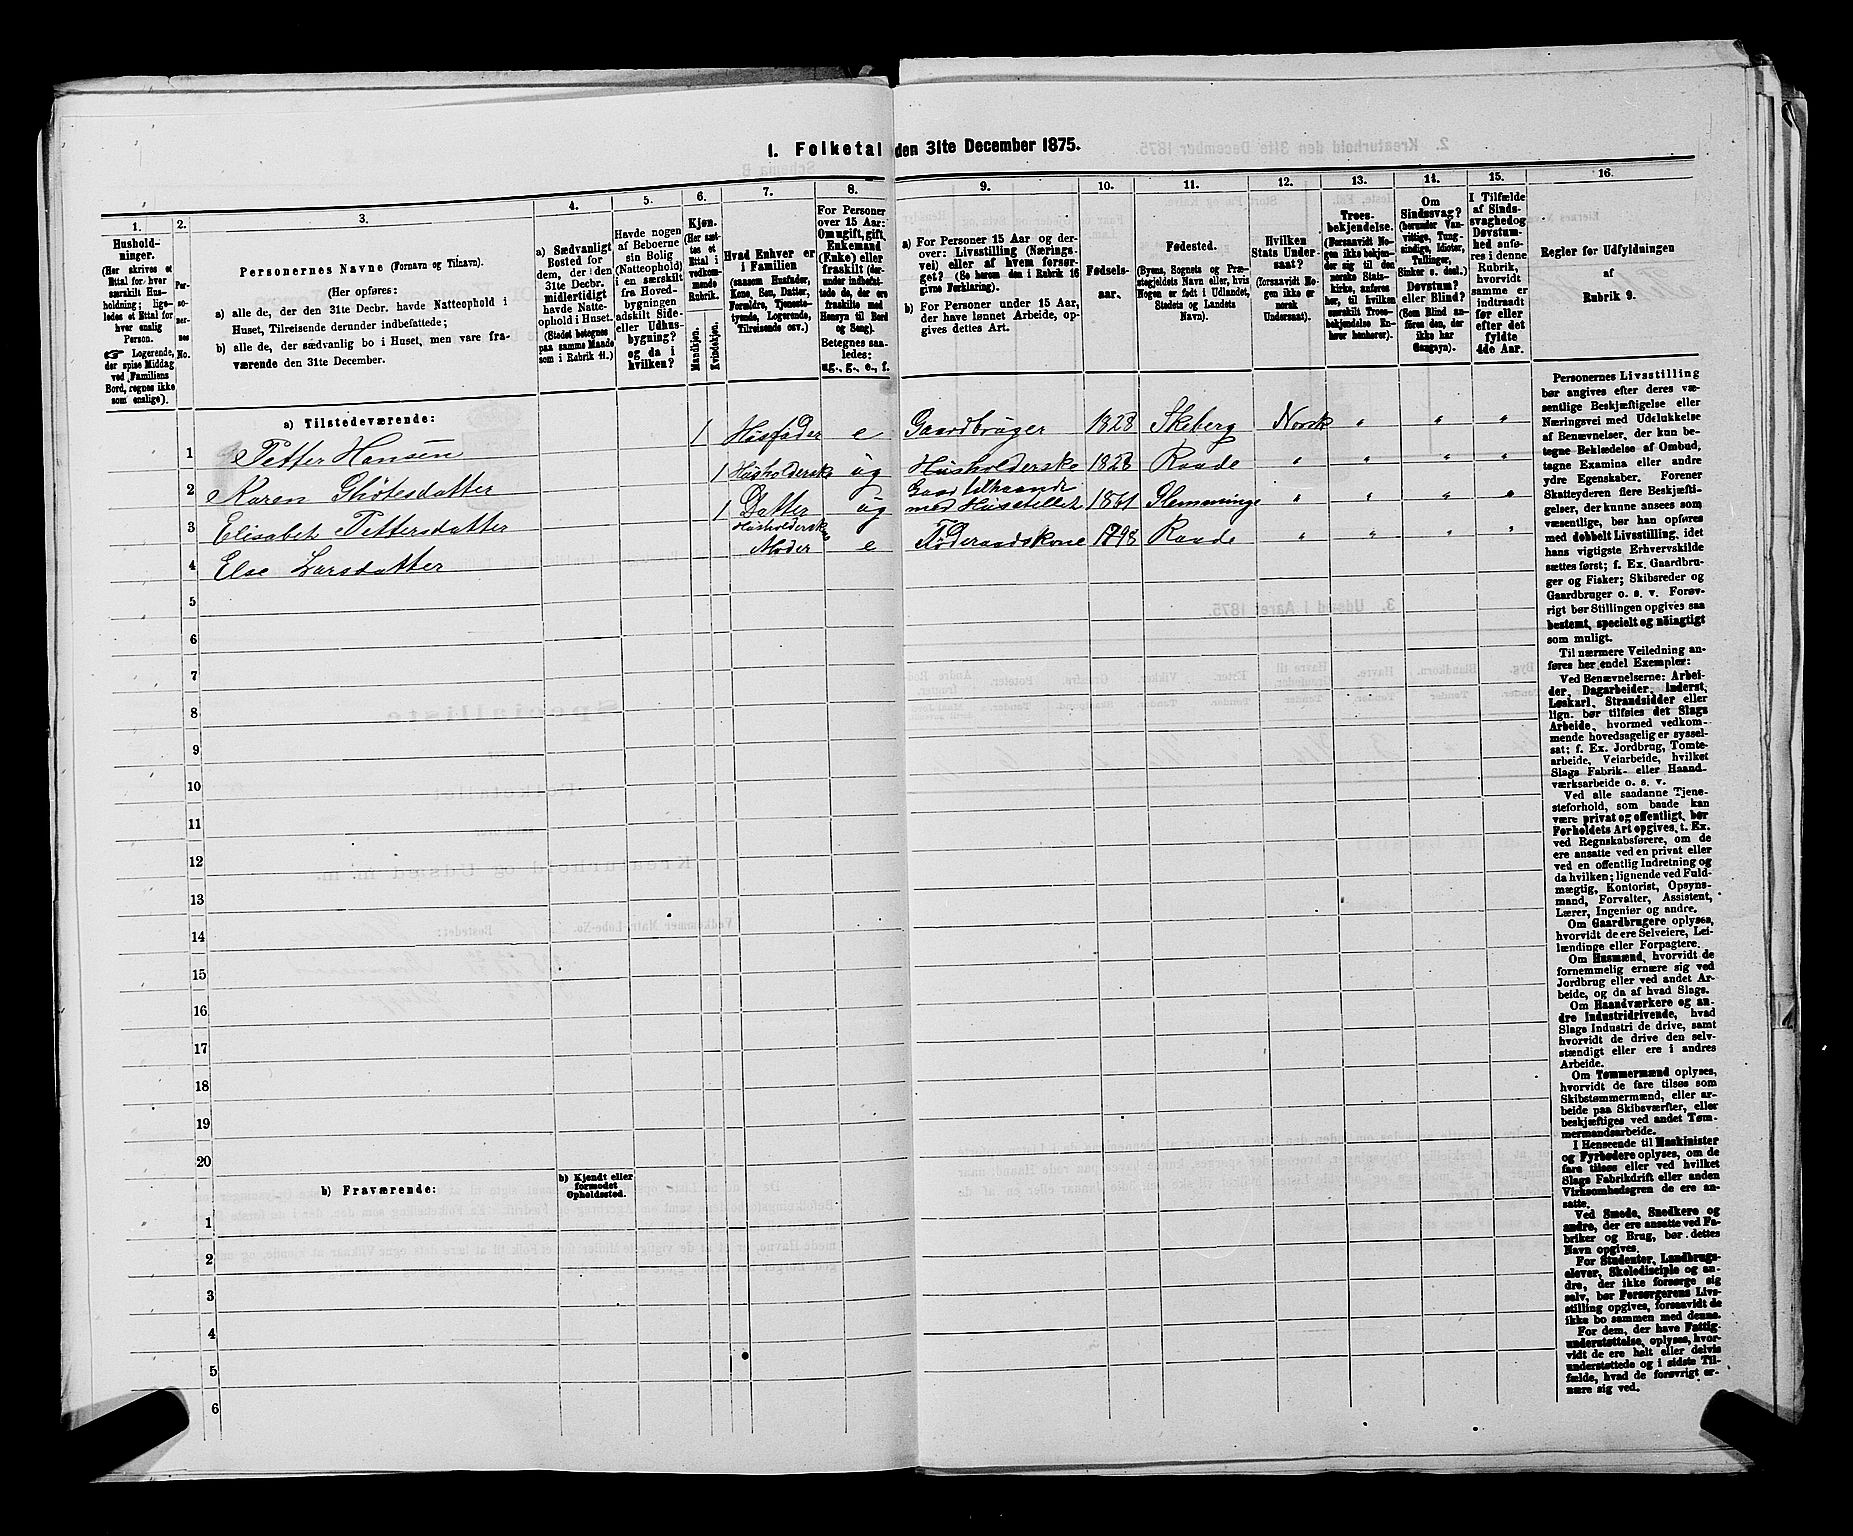 1. Folketal den 31te December 1875.
1.
Hushold-
ninger.
(Her skrives et
Ettal for hver
særskilt Hus-
holdning; lige-
ledes et Ettal for
hver enslig
Person.
☞ Logerende,
der spise Middag
ved Familiens
Bord, regnes ikke
som enslige).
2.
Per-
so-
ner-
nes
No.
3.
Personernes Navne (Fornavn og Tilnavn).
(Her opføres:
a) alle de, der den 31te Decbr. havde Natteophold i
Huset, Tilreisende derunder indbefattede;
b) alle de, der sædvanlig bo i Huset, men vare fra-
værende den 31te December.
4.
a) Sædvanligt
Bosted for
dem, der den
31te Decbr.
midlertidigt
havde Natte-
ophold i Huset.
(Stedet betegnes
paa samme Maade
som i Rubrik 11.)
5.
Havde nogen
af Beboerne
sin Bolig
(Natteophold)
i en særskilt
fra Hoved-
bygningen
adskilt Side-
eller Udhus-
bygning?
og da i
hvilken?
6.
Kjøn.
(Her sæt-
tes et
Ettal i
vedkom-
mende
Rubrik.
Mandkjøn.
Kvindekjøn.
7.
Hvad Enhver er
i Familien
(saasom Husfader,
Kone, Søn, Datter,
Forældre, Tjeneste-
tyende, Logerende,
Tilreisende osv.)
8.
For Personer
over 15 Aar:
Om ugift, gift,
Enkemand
(Enke) eller
fraskilt (der-
under indbefat-
tede de, der ere
fraskilte med
Hensyn til Bord
og Seng).
Betegnes saa-
ledes:
ug., g., e., f.
9.
a) For Personer 15 Aar og der-
over: Livsstilling (Nærings-
vei) eller af hvem forsør-
get? (Se herom den i Rubrik 16
givne Forklaring).
b) For Personer under 15 Aar,
der have lønnet Arbeide, op-
gives dettes Art.
10.
Fødsels-
aar.
11.
Fødested.
(Byens, Sognets og Præ-
stegjeldets Navn eller, hvis
Nogen er født i Udlandet,
Stedets og Landets
Navn).
12.
Hvilken
Stats Under-
saat?
(Forsaavidt No-
gen ikke er
norsk
Undersaat).
13.
Troes-
bekjendelse.
(Forsaavidt No-
gen ikke bekjen-
der sig til den
norske Stats-
kirke, anføres
her, til hvilken
særskilt Troes-
bekjendelse En-
hver henhører).
14.
Om
Sindssvag?
(herunder Van-
vittige, Tung-
sindige, Idioter,
Tullinger,
Sinker o. desl.)
Døvstum?
eller Blind?
(Som Blind an-
føres den, der
ikke har
Gangsyn).
15.
I Tilfælde
af Sinds-
svaghed og
Døvstum-
hed anfø-
res i denne
Rubrik,
hvorvidt
samme er
indtraadt
før eller
efter det
fyldte
4de Aar.
16.
Regler for Udfyldningen
af
Rubrik 9.
a) Tilstedeværende:
1 Petter Hansen 1 Husfader e Gaardbruger 1828 Skeberg Norsk " " "
2 Karen Ghøtesdatter 1 Husholderske ug Husholderske 1828 Raade " " " "
3 Elisabet Pettersdatter 1 Datter ug
med Husstellet 1861 Glemminge " " " "
4 Else Larsdatter Husholderskes
Moder e Föderaadskone 1798 Raade " " " "
5
6
7
8
9
10
11
12
13
14
15
16
17
18
19
20
b) Fraværende:
b) Kjendt eller
formodet
Opholdssted.
1
2
3
4
5
6
Personernes Livsstilling
bør angives efter deres væ-
sentlige Beskjæftigelse eller
Næringsvei med Udelukkelse
af Benævnelser, der kun be-
tegne Beklædelse af Ombud,
tagne Examina eller andre
ydre Egenskaber. Forener
Skatteyderen flere Beskjæfti-
gelser, der kunne ansees som
væsentlige, bør han opføres
med dobbelt Livsstilling, idet
hans vigtigste Erhvervskilde
sættes først; f. Ex. Gaardbru-
ger og Fisker; Skibsreder og
Gaardbruger o. s. v. Forøv-
rigt bør Stillingen opgives saa
bestemt, specielt og nøiagtigt
som muligt.
Til nærmere Veiledning an-
føres her endel Exempler:
Ved Benævnelserne: Arbei-
der, Dagarbeider, Inderst,
Løskarl, Strandsidder eller
lign. bør tilføies det Slags
Arbeide, hvormed vedkom-
mende hovedsagelig er syssel-
sat; f. Ex. Jordbrug, Tomte-
arbeide, Veiarbeide, hvilket
Slags Fabrik- eller Haand-
værksarbeide o. s. v.
Ved alle saadanne Tjene-
steforhold, som baade kan
være privat og offentligt, bør
Forholdets Art opgives, t. Ex.
ved Regnskabsførere, om de
ere ansatte ved en privat eller
ved en offentlig Indretning og
da hvilken; lignende ved Fuld-
mægtig, Kontorist, Opsyns-
mand, Forvalter, Assistent,
Lærer, Ingeniør og andre.
Om Gaardbrugere oplyses,
hvorvidt de ere Selveiere, Lei-
lændinge eller Forpagtere.
Om Husmænd, hvorvidt de
fornemmelig ernære sig ved
Jordbrug eller ved andet Ar-
beide, og da af hvad Slags.
Om Haandværkere og an-
dre Industridrivende, hvad
Slags Industri de drive, samt
hvorvidt de drive den selv-
stændigt eller ere i andres
Arbeide.
Om Tømmermænd oplyses,
hvorvidt de fare tilsøs som
Skibstømmermænd, eller ar-
beide paa Skibsværfter, eller
beskjæftiges ved andet Tøm-
mermandsarbeide.
I Henseende til Maskinister
og Fyrbødere oplyses, om de
fare tilsøs eller ved hvilket
Slags Fabrikdrift eller anden
Virksomhedsgren de ere an-
satte.
Ved Smede, Snedkere og
andre, der ere ansatte ved Fa-
briker og Brug, bør dettes
Navn opgives.
For Studenter, Landbrugs-
elever, Skoledisciple og an-
dre, der ikke forsørge sig
selv, bør Forsørgerens Livs-
stilling opgives, forsaavidt de
ikke bo sammen med denne.
For dem, der have Fattig-
understøttelse, oplyses, hvor-
vidt de ere helt eller delvis
understøttede og i sidste Til-
fælde, hvad de forøvrigt er-
nære sig ved.